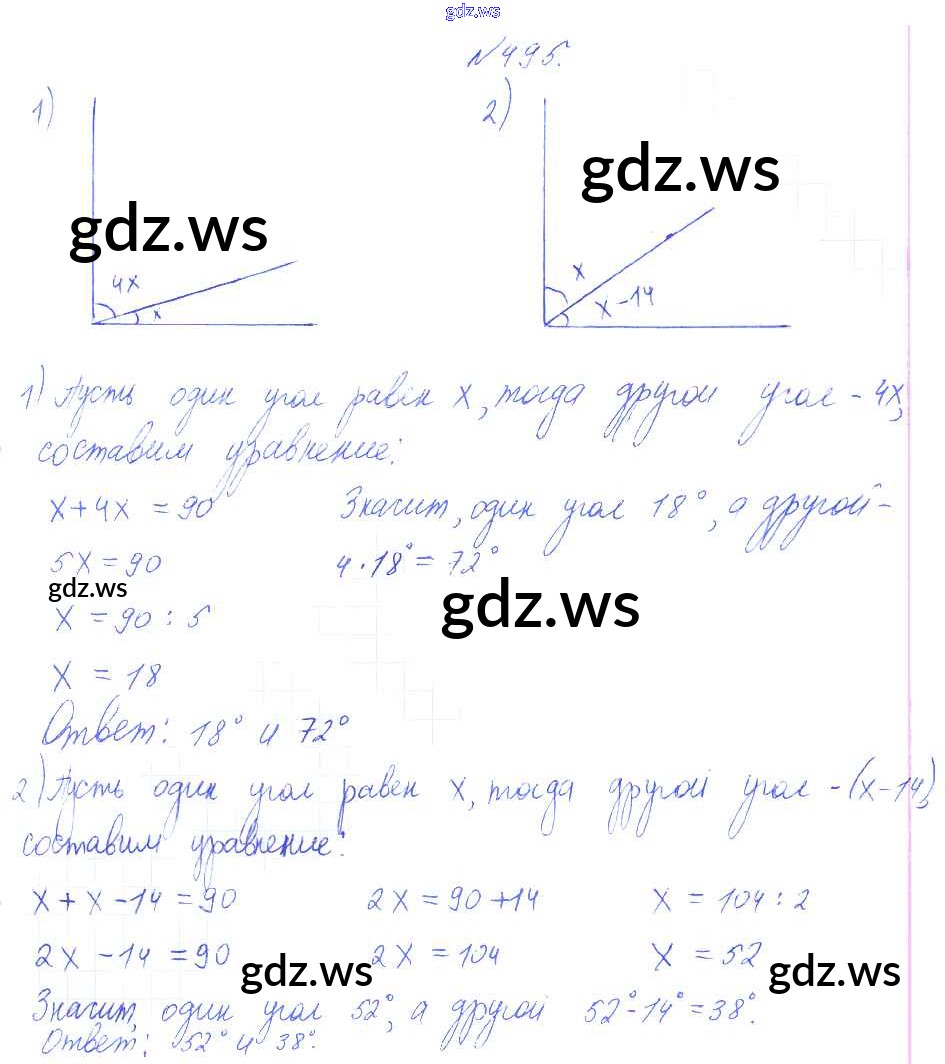 gdz.ws
№495.
1)
2)
gdz.ws
gdz.ws
4x
x
x
x-14
1) Пусть один угол равен x, тогда другой угол - 4x,
составим уравнение:
x+4x = 90 Значит, один угол 18°, а другой -
5x = 90 4·18° = 72°
gdz.ws
gdz.ws
x = 90 : 5
x = 18
Ответ: 18° и 72°
2) Пусть один угол равен x, тогда другой угол - (x-14),
составим уравнение:
x + x - 14 = 90 2x = 90+14 x = 104 : 2
2x - 14 = 90 2x = 104 x = 52
gdz.ws gdz.ws
Значит, один угол 52°, а другой 52°-14°=38°.
Ответ: 52° и 38°.